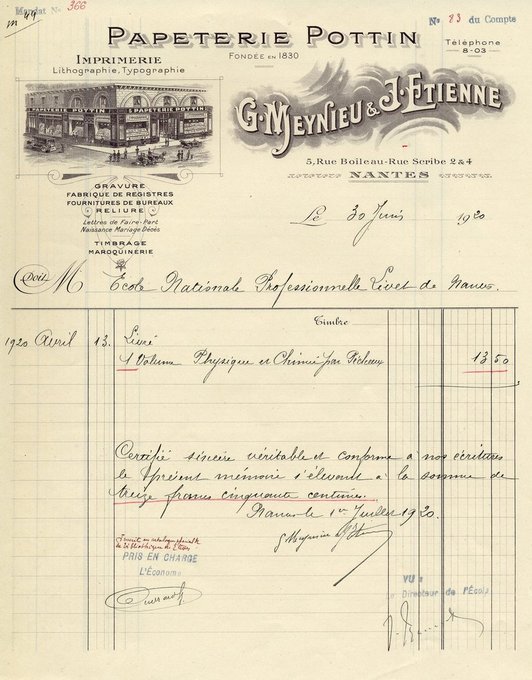 Mandat No 366
m 49
No 83 du Compte
PAPETERIE POTTIN
FONDÉE EN 1830
Téléphone
8-03
IMPRIMERIE
Lithographie, Typographie
PAPETERIE POTTIN
5 PAPETERIE POTTIN
G. MEYNIEU & J. ETIENNE
5, Rue Boileau - Rue Scribe 2 & 4
NANTES
GRAVURE
FABRIQUE DE REGISTRES
FOURNITURES DE BUREAUX
RELIURE
Lettres de Faire-Part
Naissance Mariage Décès
TIMBRAGE
MAROQUINERIE
Le 30 Juin 1920
Doit M École Nationale Professionnelle Livet de Nantes
Timbre
1920 Avril 13. Livré
1 Volume Physique et Chimie par 13 50
Certifié sincère véritable et conforme à nos écritures
le présent mémoire s'élevant à la somme de
treize francs cinquante centimes.
Nantes le 1er Juillet 1920.
G Meynieu
Inscrit au catalogue spécial de
la bibliothèque
PRIS EN CHARGE
L'Économe
VU:
Le Directeur de l'École